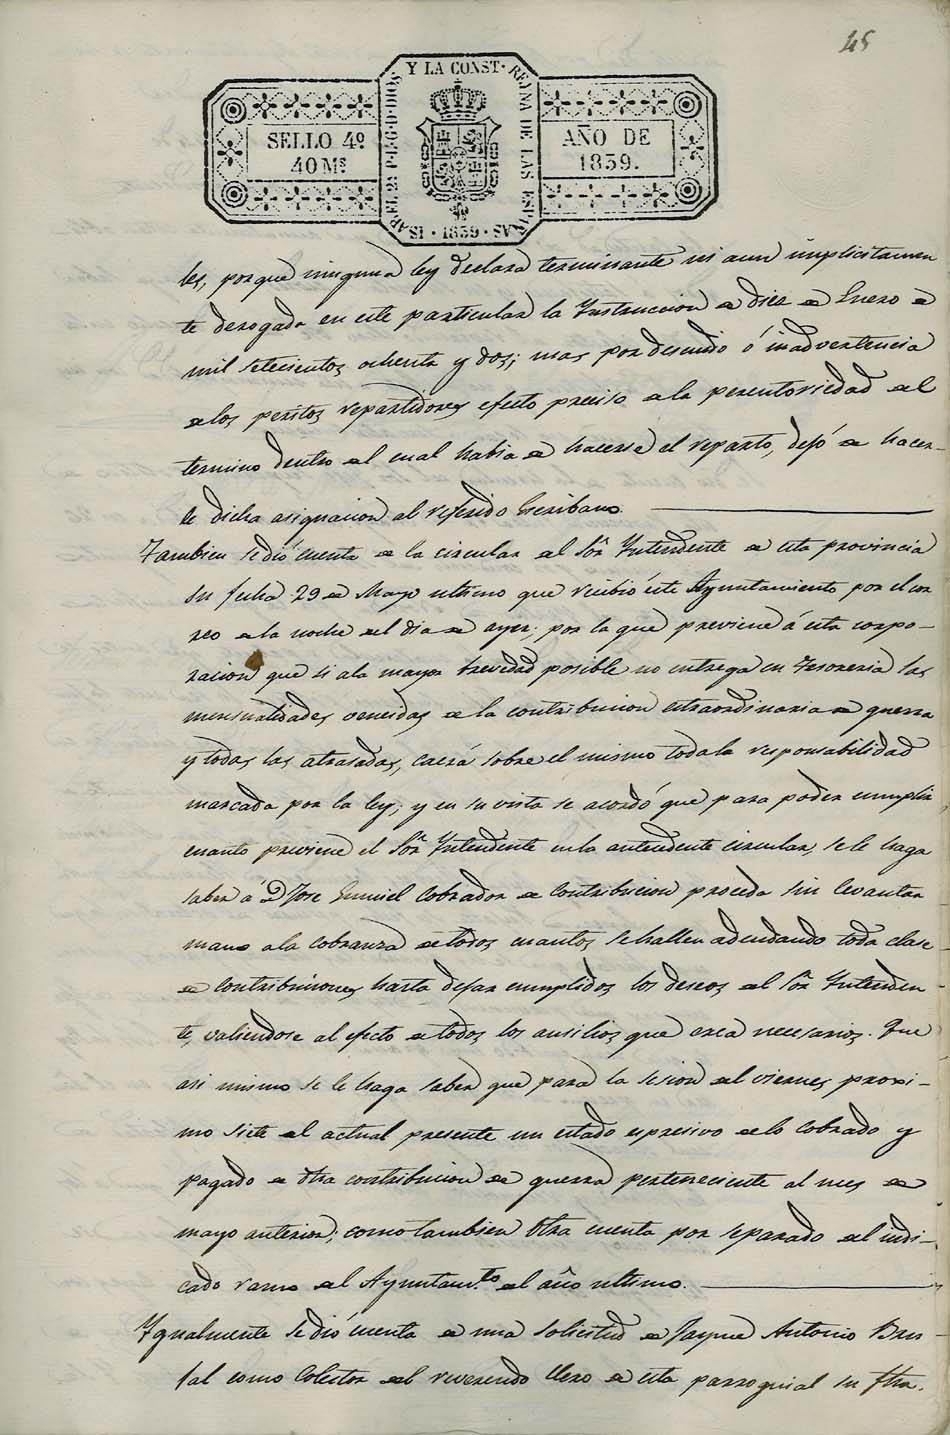 45
ISABEL 2ª P.L.G.D.DIOS Y LA CONST. REYNA DE LAS ESPAÑAS
SELLO 4º
40 Ms.
AÑO DE
1839.
1839
les, porque ninguna ley declara terminante ni aun implicitamen
te derogada en este particular la Instruccion de diez de Enero de
mil setecientos ochenta y dos; mas por descuido ó inadvertencia
de los peritos repartidores efecto preciso de la perentoriedad del
termino dentro del cual habia de hacerse el reparto, dejó de hacer-
le dicha asignacion al referido Escribano.
Tambien se dió cuenta de la circular del Sor. Yntendente de esta provincia
su fecha 29 de Mayo ultimo que recibió este Ayuntamiento por el cor
reo de la noche del dia de ayer; por la que previene á esta corpo-
racion que si a la mayor brevedad posible no entrega en Tesoreria las
mensualidades vencidas de la contribucion estraordinaria de guerra
y todas las atrasadas, caerá sobre el mismo toda la responsabilidad
marcada por la ley; y en su vista se acordó que para poder cumplir
cuanto previene el Sor. Yntendente en la antecedente circular, se le haga
saber á D. Jose Cobrador de Contribucion proceda sin levantar
mano a la cobranza de todos cuantos se hallen adeudando toda clase
de Contribuciones hasta dejar cumplidos los deseos del Sor. Yntenden
te, valiendose al efecto de todos los ausilios que crea necesarios. Que
asi mismo se le haga saber que para la sesion del viernes proxi-
mo siete del actual presente un estado espresivo de lo Cobrado y
pagado de dha contribucion de guerra perteneciente al mes de
mayo anterior; como tambien otra cuenta por separado del indi-
cado ramo del Ayuntamto. del año ultimo.
Ygualmente se dió cuenta de una solicitud de Jayme Antonio
como Colector del reverendo Clero de esta parroquial su fha.